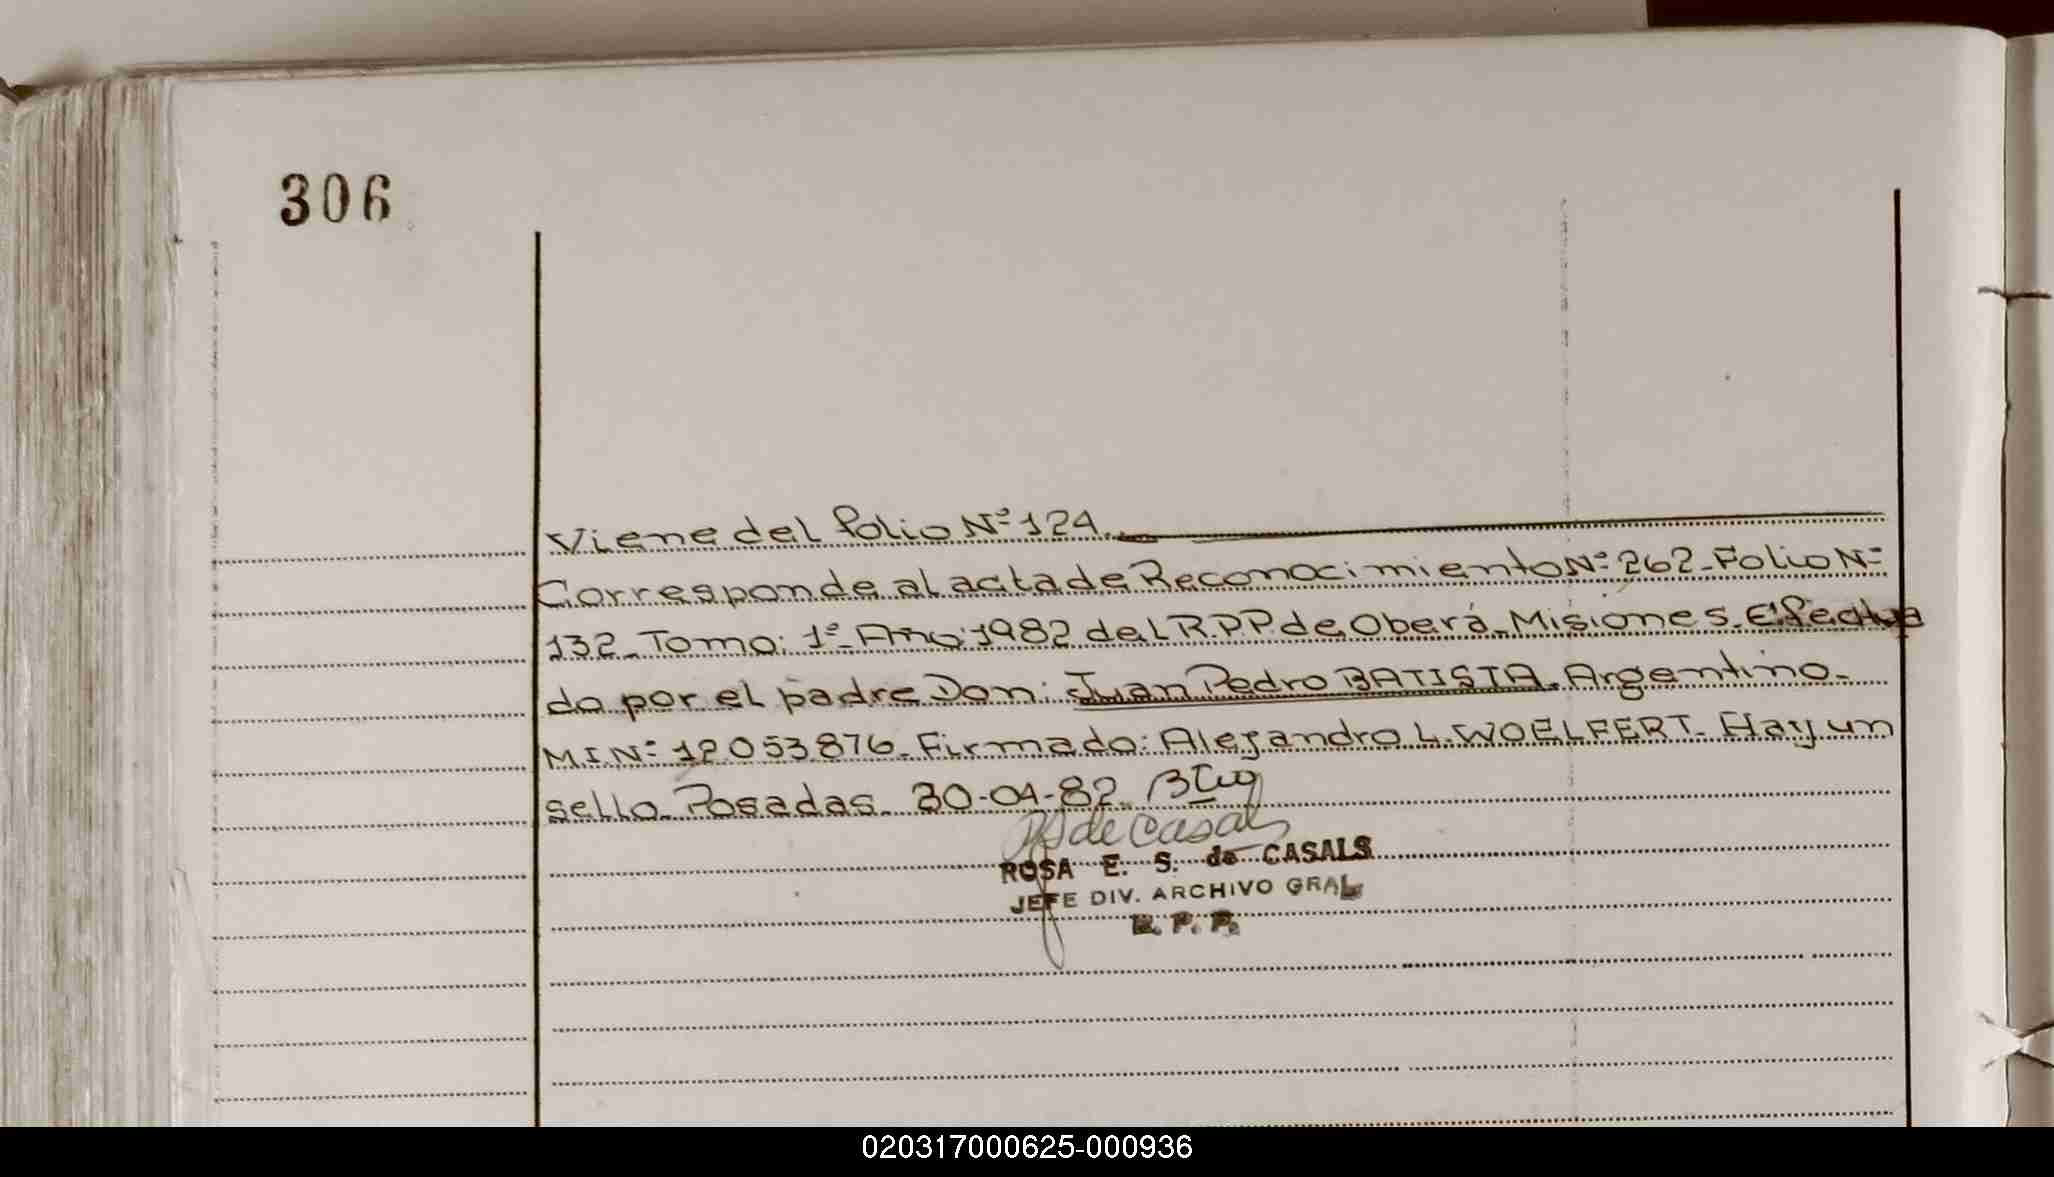 306
Viene del folio Nº 124.
Corresponde al acta de Reconocimiento Nº 262 - Folio Nº
132 - Tomo: 1º - Año: 1982 del R.P.P. de Oberá - Misiones. Efectua
do por el padre Don: Juan Pedro BATISTA. Argentino -
M.I.Nº 12.053.876 - Firmado: Alejandro L. WOELFERT - Hay un
sello. Posadas - 30-04-82.
de Casals
ROSA E. S. de CASALS
JEFE DIV. ARCHIVO GRAL
R. P. P.
020317000625-000936